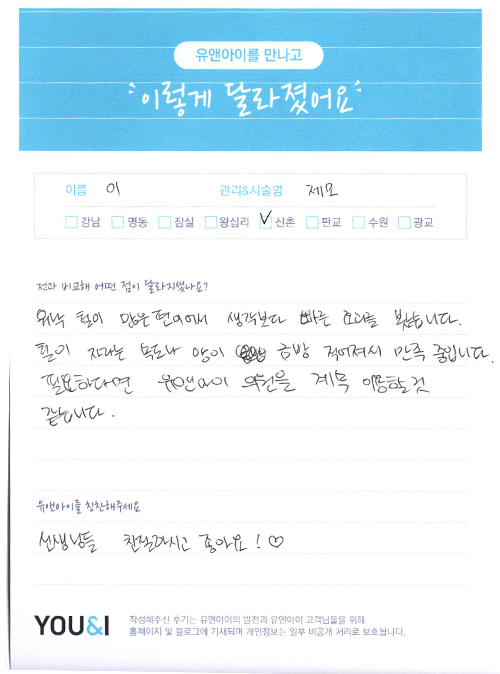 유앤아이를 만나고
이렇게 달라졌어요
이름 이 관리&시술명 제모
강남 명동 잠실 왕십리 신촌 판교 수원 광교
전과 비교해 어떤 점이 달라지셨나요?
워낙 털이 많은편이어서 생각보다 빠른 효과를 봤습니다.
털이 자라는 속도나 양이 금방 적어져서 만족 중입니다.
필요하다면 유앤아이 의원을 계속 이용할것
같습니다.
유앤아이를 칭찬해주세요
선생님들 친절하시고 좋아요! ♡
YOU&I
작성해주신 후기는 유앤아이의 발전과 유앤아이 고객님들을 위해
홈페이지 및 블로그에 기재되며 개인정보는 일부 비공개 처리로 보호됩니다.